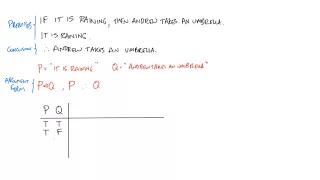 PREMISES { IF IT IS RAINING, THEN ANDREW TAKES AN UMBRELLA.
IT IS RAINING.
CONCLUSION { ∴ ANDREW TAKES AN UMBRELLA.
P = "IT IS RAINING" Q = "ANDREW TAKES AN UMBRELLA"
ARGUMENT FORM { P→Q, P ∴ Q
P Q
T T
T F